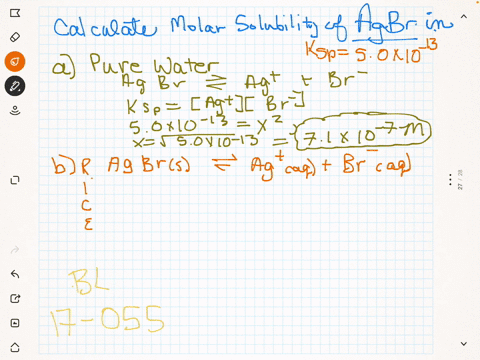 Calculate Molar Solubility of AgBr in
Ksp = 5.0×10⁻¹³
a) Pure Water
AgBr ⇌ Ag⁺ + Br⁻
Ksp = [Ag⁺][Br⁻]
5.0×10⁻¹³ = x²
x = √5.0×10⁻¹³ = 7.1×10⁻⁷ M
b) R AgBr(s) ⇌ Ag⁺(aq) + Br⁻(aq)
I
C
E
BL
17-055
27 / 28